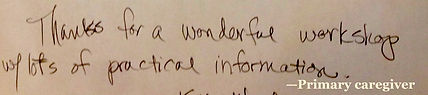 Thanks for a wonderful workshop
w/ lots of practical information.
—Primary caregiver